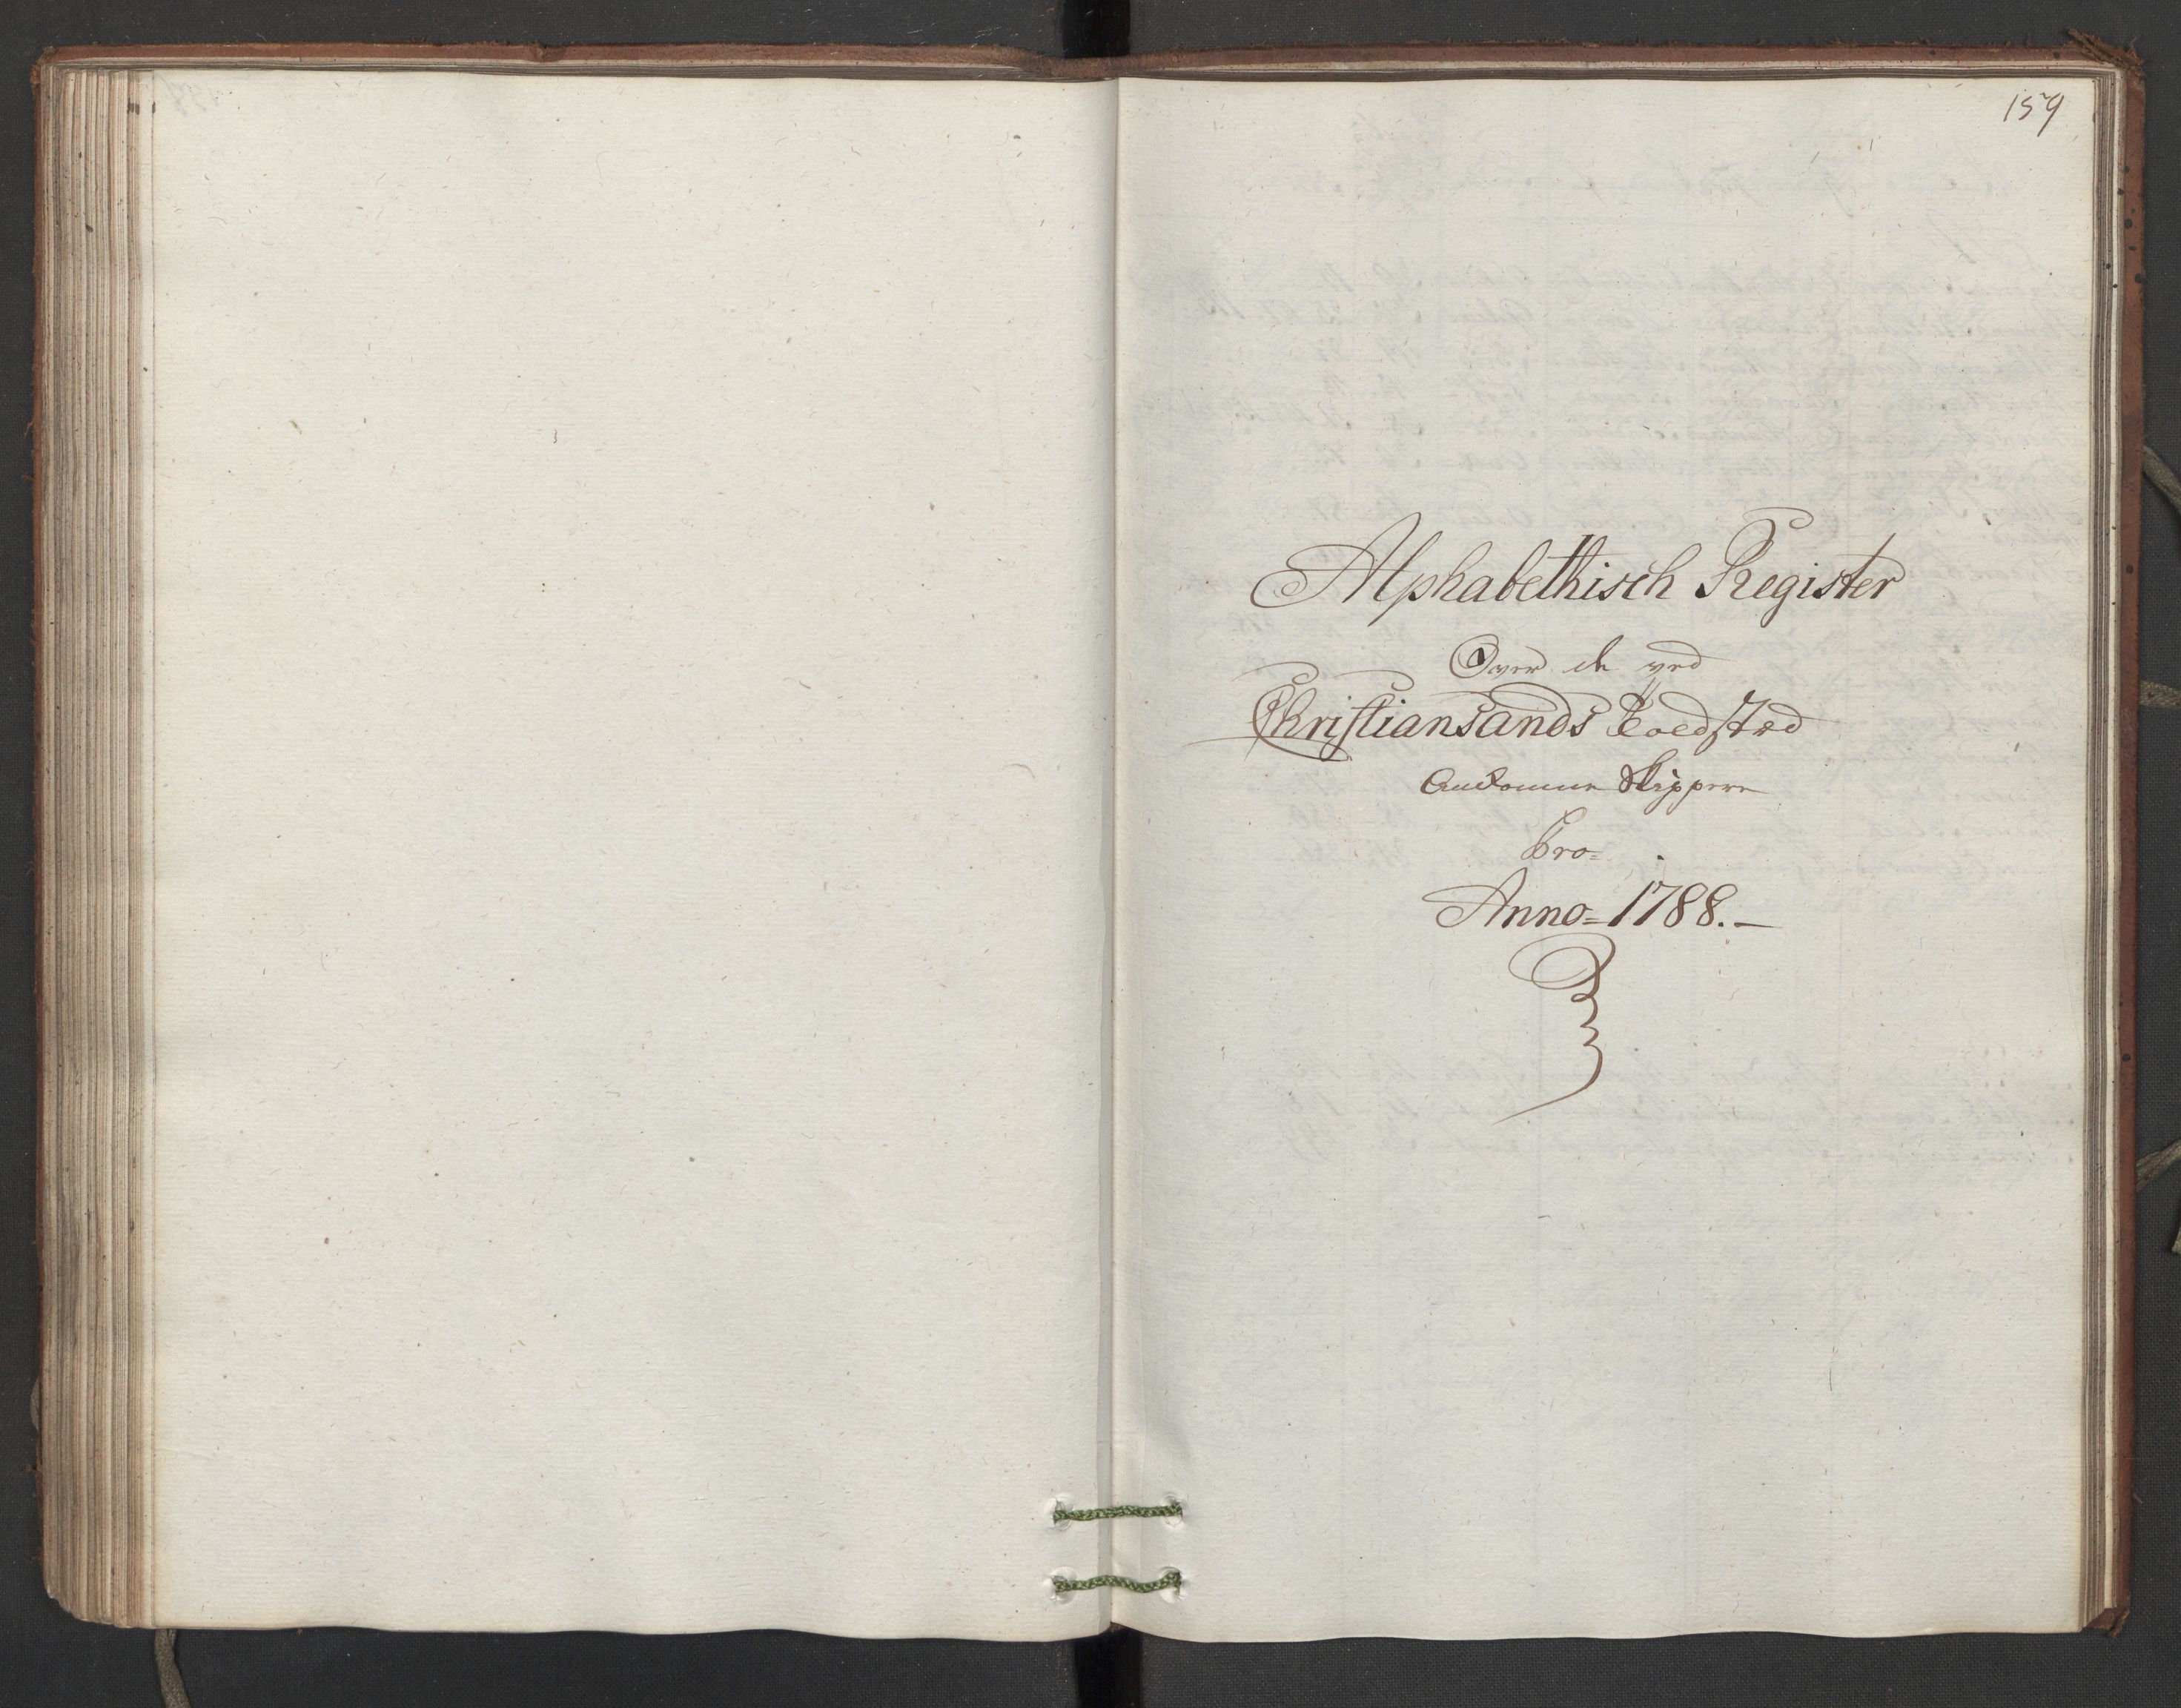 159
Alphabethisch Register
Over de ved
Christiansands Toldsted
Ankomne Skippere
Pro=
Anno=1788.—